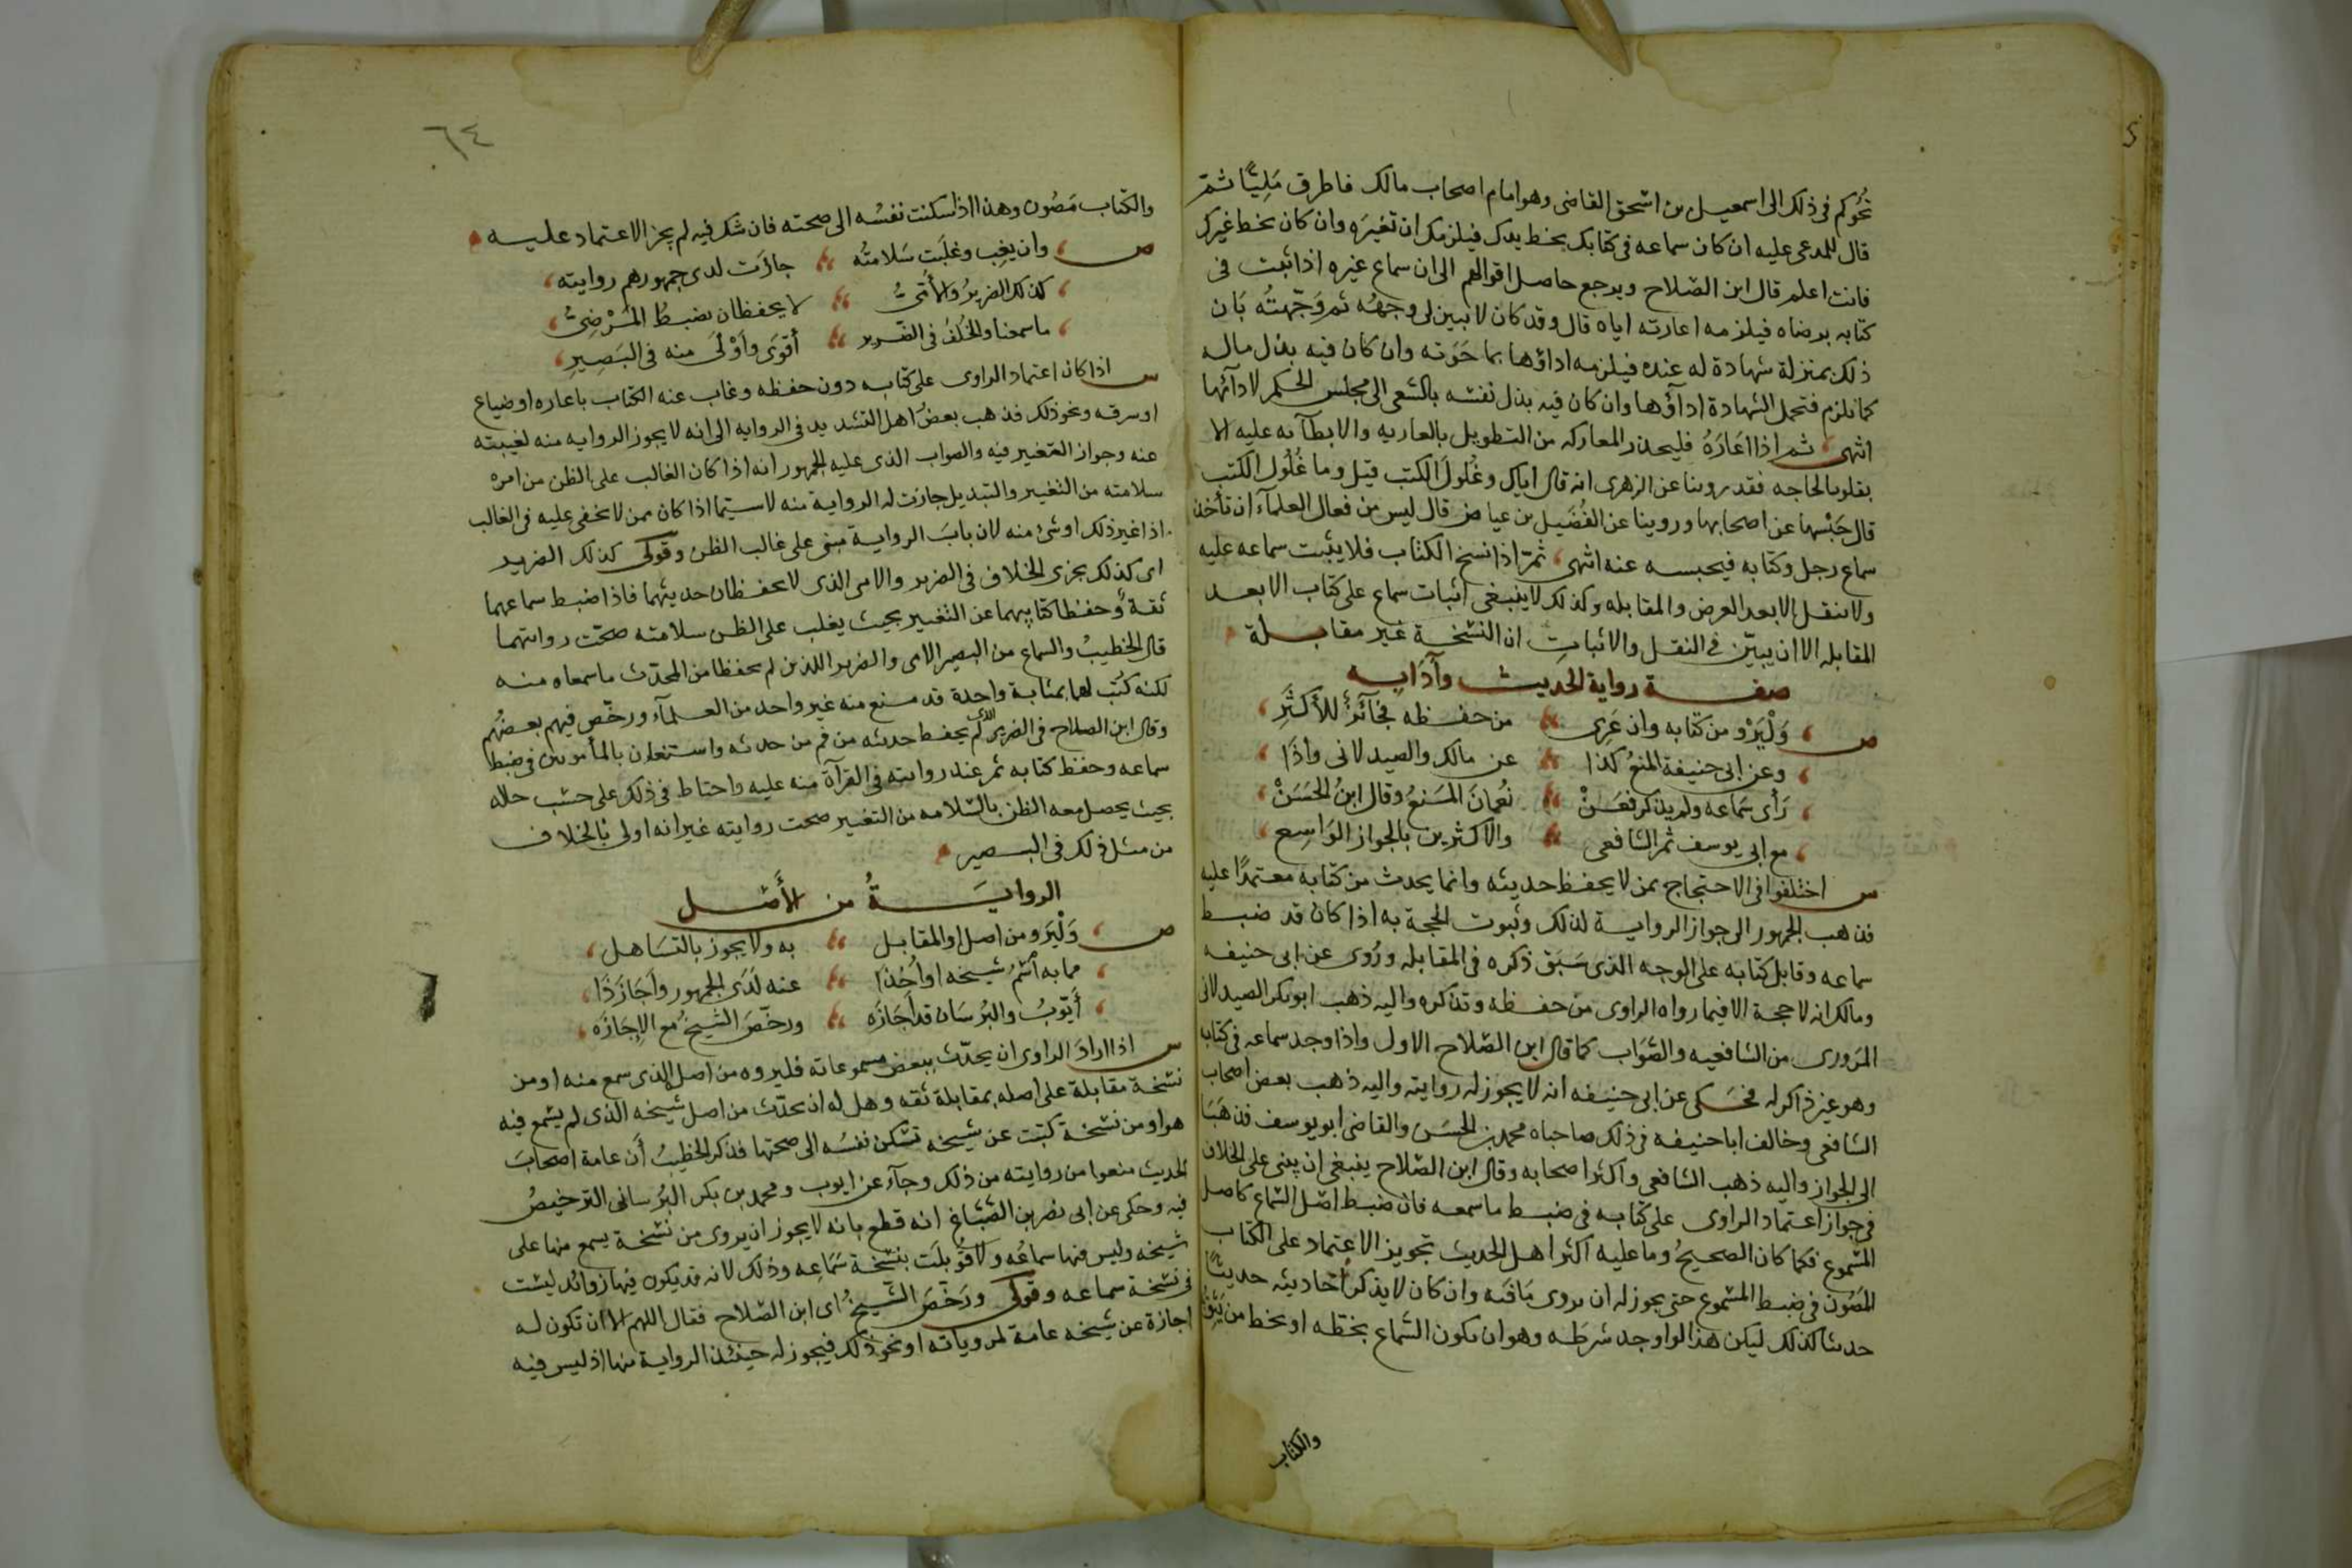 تحوكم فى ذلك الى اسمعيل بن اسحق القاضى وهو امام اصحاب مالك فاطرق مَلِيًّا ثمّ
قال للمدعى عليه ان كان سماعه فى كتابك بخط يدك فيلزمك ان تعيره وان كان بخط غيرك
فانت اعلم قال ابن الصّلاح ويرجع حاصل اقوالهم الى ان سماع غيره اذا ثبت فى
كتابه برضاه فيلزمه اعارته اياه قال وقد كان لا يبين لى وجهُه ثم وَجّهتُه بَان
ذلك بمنزلة شهادة له عنده فيلزمه اداؤها بما حَوَته وان كان فيه بذل ماله
كما يلزم متحمل الشهادة ادآؤها وان كان فيه بذل نفسه بالسّعى الى مجلس الحكم لادآئها
انتهى ثم اذا اعَارَهُ فليحذر المعار له من التطويل بالعاريه والابطآء به عليه الا
بقدر الحاجه فقد روينا عن الزهرى انه قال اياك وغُلولَ الكتب قيل وما غُلُول الكتب
قال حَبْسها عن اصحابها وروينا عن الفُضَيل بن عياض قال ليس من فعال العلمآء ان تأخذ
سماع رجل وكتابه فيحبسه عنه انتهى ثمّ اذا نسخ الكتاب فلا يثبت سماعه عليه
ولا ينقل الا بعد العرض والمقابله وكذلك لا ينبغى اثبات سماع على كتاب الا بعد
المقابله الا ان يبيّن فى النقل والاثباتِ ان النسخة غير مقابلة
صفة رواية الحَديث وآدابه
ص وَلْيَرْوِ من كتابه وان عَرِى من حفظه فجَائزٌ للأكثَرِ
وعن ابى حنيفة المنعُ كذا عن مالك والصيدلانى واذا
رَأى سَماعه ولم يذكر فعَنْ نُعمانَ المَنعُ وقال ابنُ الحَسَنْ
مع ابى يوسف ثم الشافعى والاكثرين بالجواز الوَاسِع
س اختلفوا فى الاحتجاج بمن لا يحفظ حديثه وانما يحدث من كتابه معتمدًا عليه
فذهب الجمهور الى جواز الرواية لذلك وثبوت الحجة به اذا كان قد ضبط
سماعه وقابل كتابه على الوجه الذى سَبَق ذكره فى المقابله ورُوى عن ابى حنيفه
ومالك انه لا حجة الا فيما رواه الراوى من حفظه وتذكره واليه ذهب ابو بكر الصيدلانى
المَرورى من الشافعيه والصّوَاب كما قال ابن الصّلاح الاول واذا وجد سماعه فى كتابه
وهو غير ذاكر له فحُكى عن ابى حنيفه انه لا يجوز له روايته واليه ذهب بعض اصحاب
الشافعى وخالف ابا حنيفه فى ذلك صاحباه محمد بن الحسَن والقاضى ابو يوسف فذهَبَا
الى الجواز واليه ذهب الشافعى واكثر اصحابه وقال ابن الصّلاح ينبغى ان يبنى على الخلاف
فى جواز اعتماد الراوى على كتابه فى ضبط ما سمعه فان ضبط اصْل السّماع كاصل
المسْموع فكما كان الصحيحُ وما عليه اكثر اهل الحديث تجويز الاعتماد على الكتاب
المَصُون فى ضبط المسْموع حتى يجوز له ان يروى مَا فيه وان كان لا يذكر احاديثه حديثًا
حديثا كذلك ليكن هذا لو اوجد شرطه وهو ان يكون السّماع بخطّه او بخط من يثق
والكتاب
٦٤
والكتاب مَصُون وهذا اذا سكنت نفسُه الى صحته فان شك فيه لم يجز الاعتماد عليه
ص وان يغِب وغلبَت سَلامتُه جازَت لدى جمهورهم روايته
كذلك الضريرُ وَالأُمىُّ لا يحفظان يضبطُ المَرْضِىُّ
ما سمعنا والخُلفُ فى الضّرير أقوَى واَوْلَى منه فى البَصِيرِ
س اذا كان اعتماد الراوى على كتابه دون حفظه وغاب عنه الكتاب باعاره او ضياع
او سرقه ونحو ذلك فذهب بعضُ اهل التشديد فى الروايه الى انه لا يجوز الروايه منه لغيبته
عنه وجواز التغيير فيه والصواب الذى عليه الجمهور انه اذا كان الغالب على الظن من امره
سلامته من التغيير والتبديل جازت له الرواية منه لا سيّما اذا كان ممن لا يخفى عليه فى الغالب
اذا غير ذلك او شئ منه لان بابَ الرواية مبنى على غالب الظن وقولى كذلك الضرير
اى كذلك يجرى الخلاف فى الضرير والامى الذى لا يحفظان حديثهما فاذا ضبط سماعهما
ثقة وحفظا كتابيهما عن التغيير بحيث يغلب على الظن سلامته صحّت روايتهما
قال الخطيبُ والسماع من البصير الامى والضرير اللذين لم يحفظا من المحدّث ما سمعاه منه
لكنه كُتب لهما بمثابة واحدة قد منع منه غير واحد من العلمآء ورخّص فيهم بعضُهم
وقال ابن الصلاح فى الضرير الذى لم يحفظ حديثه من فم من حدثه واستعان بالمأمونين فى ضبط
سماعه وحفظ كتابه ثم عند روايته فى القرآءة منه عليه واحتاط فى ذلك على حسَب حاله
بحيث يحصل معه الظن بالسّلامه من التغيير صحت روايته غير انه اولى بالخلاف
من مثل ذلك فى البصير
الروايَةُ من الأَصْل
ص وَلْيَرو من اصل او المقابل به ولا يجوز بالتسَاهل
مما به اسْمُ شيخه او اُخِذَا عنه لَدَى الجمهور واَجَازَ ذَا
أَيّوبُ والبُرسَان قد اَجَازَه ورخّصَ الشيخُ مع الاِجَازَه
س اذا ارادَ الراوى ان يحدّث ببعض مسموعاته فليروه من اصل الذى سمع منه او من
نسْخة مقابلة على اصله بمقابلة ثقه وهل له ان يحدّث من اصل شيخه الذى لم يسْمع فيه
هو او من نسْخة كتبت عن شيخه تسْكن نفسُه الى صحتها فذكر الخطيبُ أَن عامة اصحابَ
الحديث منعوا من روايته من ذلك وجآء عن ايوب ومحمد بن بكر البُرسانى الترخيصُ
فيه وحكى عن ابى نصر بن الصّبّاغ انه قطع بانه لا يجوز ان يروى من نسْخة يسمع منها على
شيخه وليس فيها سماعُه ولا قُوبلَت بنسْخة سَمَاعِه وذلك لانه قد يكون فيها زوائد ليسْت
فى نسْخة سماعه وقولى ورَخّصَ الشّيخُ اى ابن الصّلاح فقال اللهم الا ان تكون له
اجازة عن شيخه عامة لمروياته او نحو ذلك فيجوز له حينئذ الرواية منها اذ ليس فيه